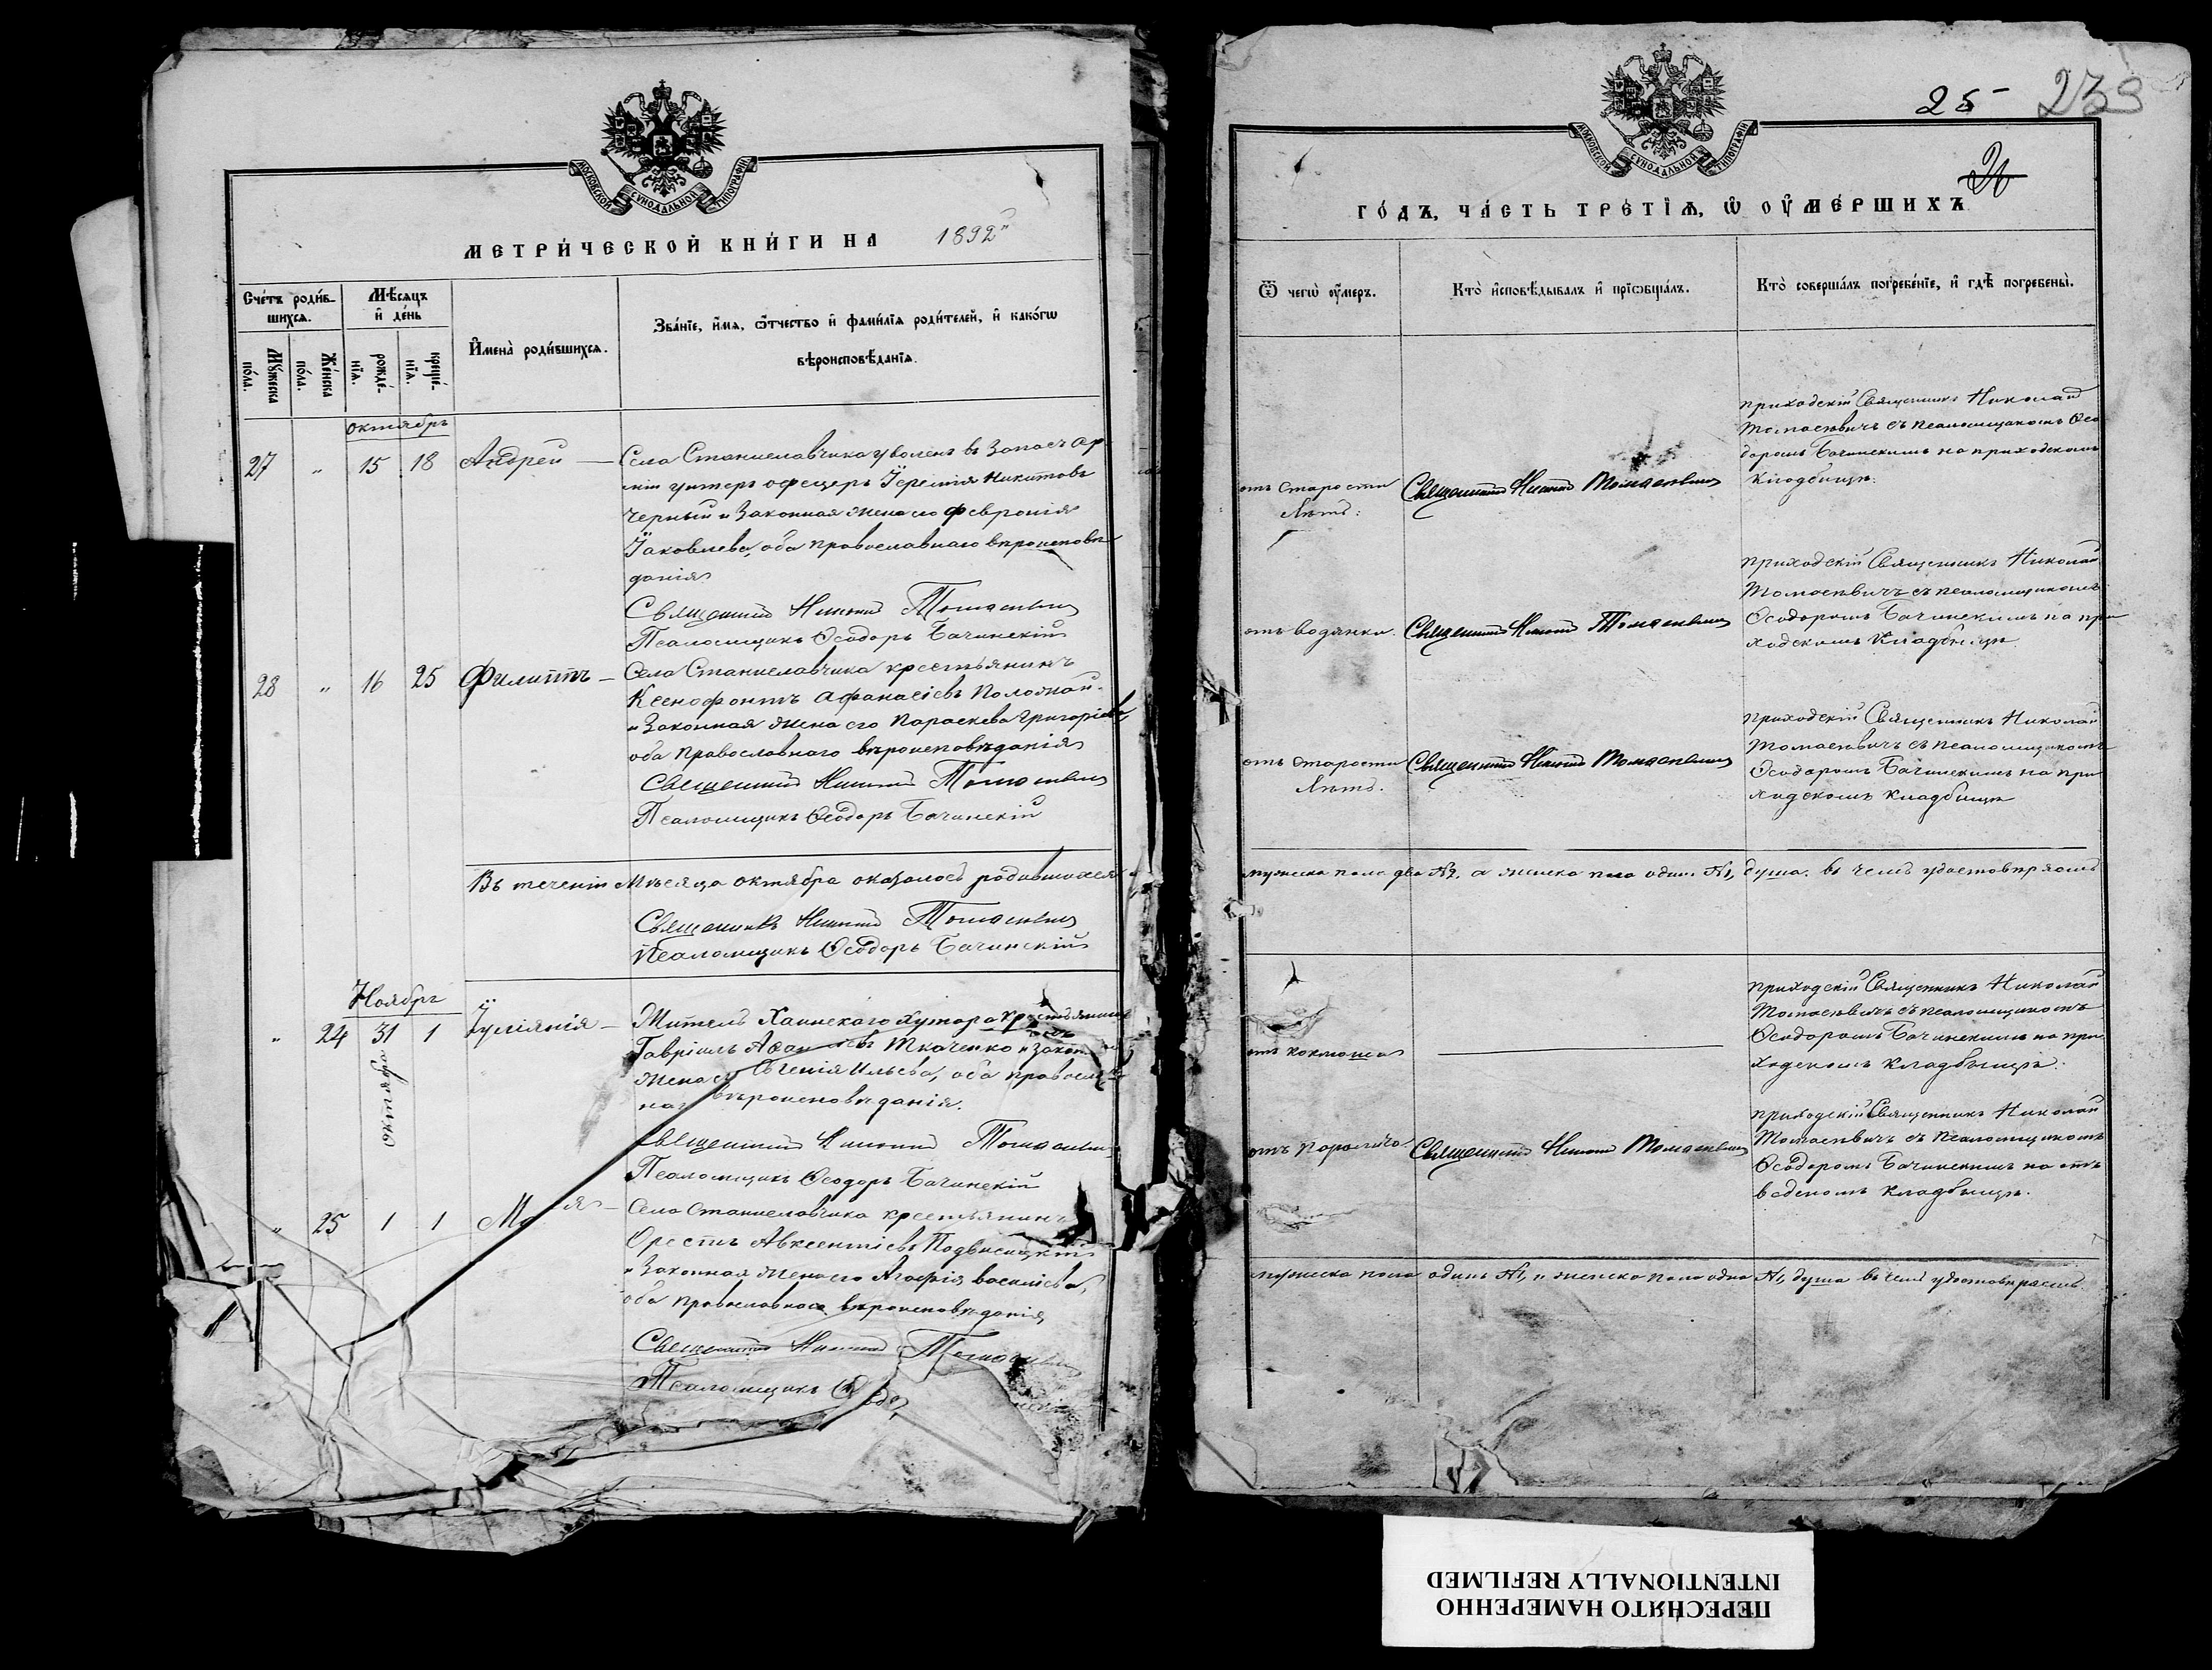 МОСКОВСКОЙ СУНОДАЛЬНОЙ ТИПОГРАФІИ
МЕТРИ́ЧЕСКОЙ КНИ́ГИ НА 1892й
Сче́тъ роди́в-
шихсѧ.
Мꙋ́жеска
по́ла.
Же́нска
по́ла.
Мѣ́сѧцъ
и҆ де́нь
рожде́-
нїѧ.
креще́-
нїѧ.
И҆мена̀ роди́вшихсѧ.
Зва́нїе, и҆́мѧ, ѻ҆́тчество и҆ фами́лїѧ роди́телей, и҆ како́гѡ
вѣроисповѣ́данїѧ.
октябрь
27 " 15 18 Андрей — Села Станиславчика уволен въ Запасъ ар
міи унтеръ офецеръ Іеремія Никитовъ
Черный и Законная жена его Февронія
Іаковлева, оба православнаго вѣроисповѣ
данія
Священникъ Николай Томасевичъ
Псаломщикъ Ѳеодоръ Бачинскій
28 " 16 25 Филиппъ — Села Станиславчика крестьянинъ
Ксенофонтъ Афанасіевъ
и Законная жена его Параскева Григоріева,
оба Православнаго вѣроисповѣданія
Священникъ Николай Томасевичъ
Псаломщикъ Ѳеодоръ Бачинскій
Въ теченіи Мѣсяца октября оказалось родившихся
Священникъ Николай Томасевичъ
Псаломщикъ Ѳеодоръ Бачинскій
Ноябрь
" 24 31 1 Іуліянія — Житель Хаинскаго хутора
октября
Гавріилъ Ткаченко и закон
жена Евгенія Ильева, оба православ
вѣроисповѣданія.
Священникъ Николай Томасевичъ
Псаломщикъ Ѳеодоръ Бачинскій
" 25 1 1 Села Станиславчика крестьянинъ
Орестъ Авксентіевъ Подвысоцкій
и Законная жена его Агафія василіева,
оба православнаго вѣроисповѣданія
Священникъ Николай Томасевичъ
Псаломщикъ
25 238
26
МОСКОВСКОЙ СУНОДАЛЬНОЙ ТИПОГРАФІИ
ГО́ДЪ, ЧА́СТЬ ТРЕ́ТЇѦ, Ѡ҆ ОУ҆МЕ́РШИХЪ
Ѿ чегѡ̀ ᲂу҆́меръ.
Кто̀ и҆сповѣ́дывалъ и҆ прїѡбща́лъ.
Кто̀ соверша́лъ погребе́нїе, и҆ гдѣ̀ погребены̀.
отъ Старости
Лѣтъ.
Священникъ Николай Томасевичъ
приходскій Священникъ Николай
Томасевичъ съ псаломщикомъ Ѳео
доромъ Бачинскимъ на приходскомъ
Кладбищѣ.
отъ водянки. Священникъ Николай Томасевичъ
приходскій Священникъ Николай
Томасевичъ съ псаломщикомъ
Ѳеодоромъ Бачинскимъ на при
ходскомъ Кладбищѣ
отъ Старости
Лѣтъ.
Священникъ Николай Томасевичъ
приходскій Священникъ Николай
Томасевичъ съ псаломщикомъ
Ѳеодоромъ Бачинскимъ на при
ходскомъ кладбищѣ
мужеска пола два №2, а женска пола один №1, душа. въ чемъ удостовѣряемъ
отъ коклюша —
приходскій Священникъ Николай
Томасевичъ съ псаломщикомъ
Ѳеодоромъ Бачинскимъ на при
ходскомъ кладбищѣ.
отъ Паралича Священникъ Николай Томасевичъ
приходскій Священникъ Николай
Томасевичъ съ псаломщикомъ
Ѳеодоромъ Бачинскимъ на от
веденомъ кладбищѣ.
мужеска пола одинъ №1, и женска пола одна №1, душа въ чемъ удостовѣряемъ
ПЕРЕСНЯТО НАМЕРЕННО
INTENTIONALLY REFILMED